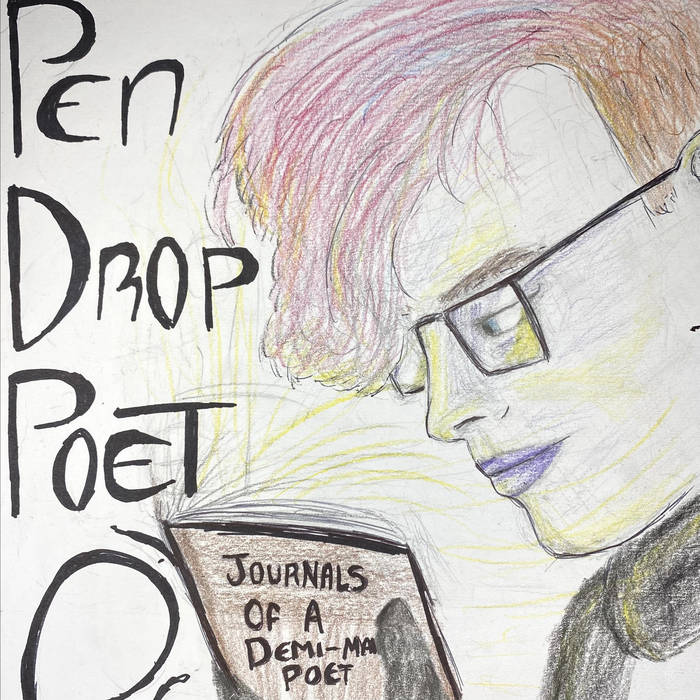 PEn
DROP
POET
JOURNALS
OF A
DEMI-MA
POET